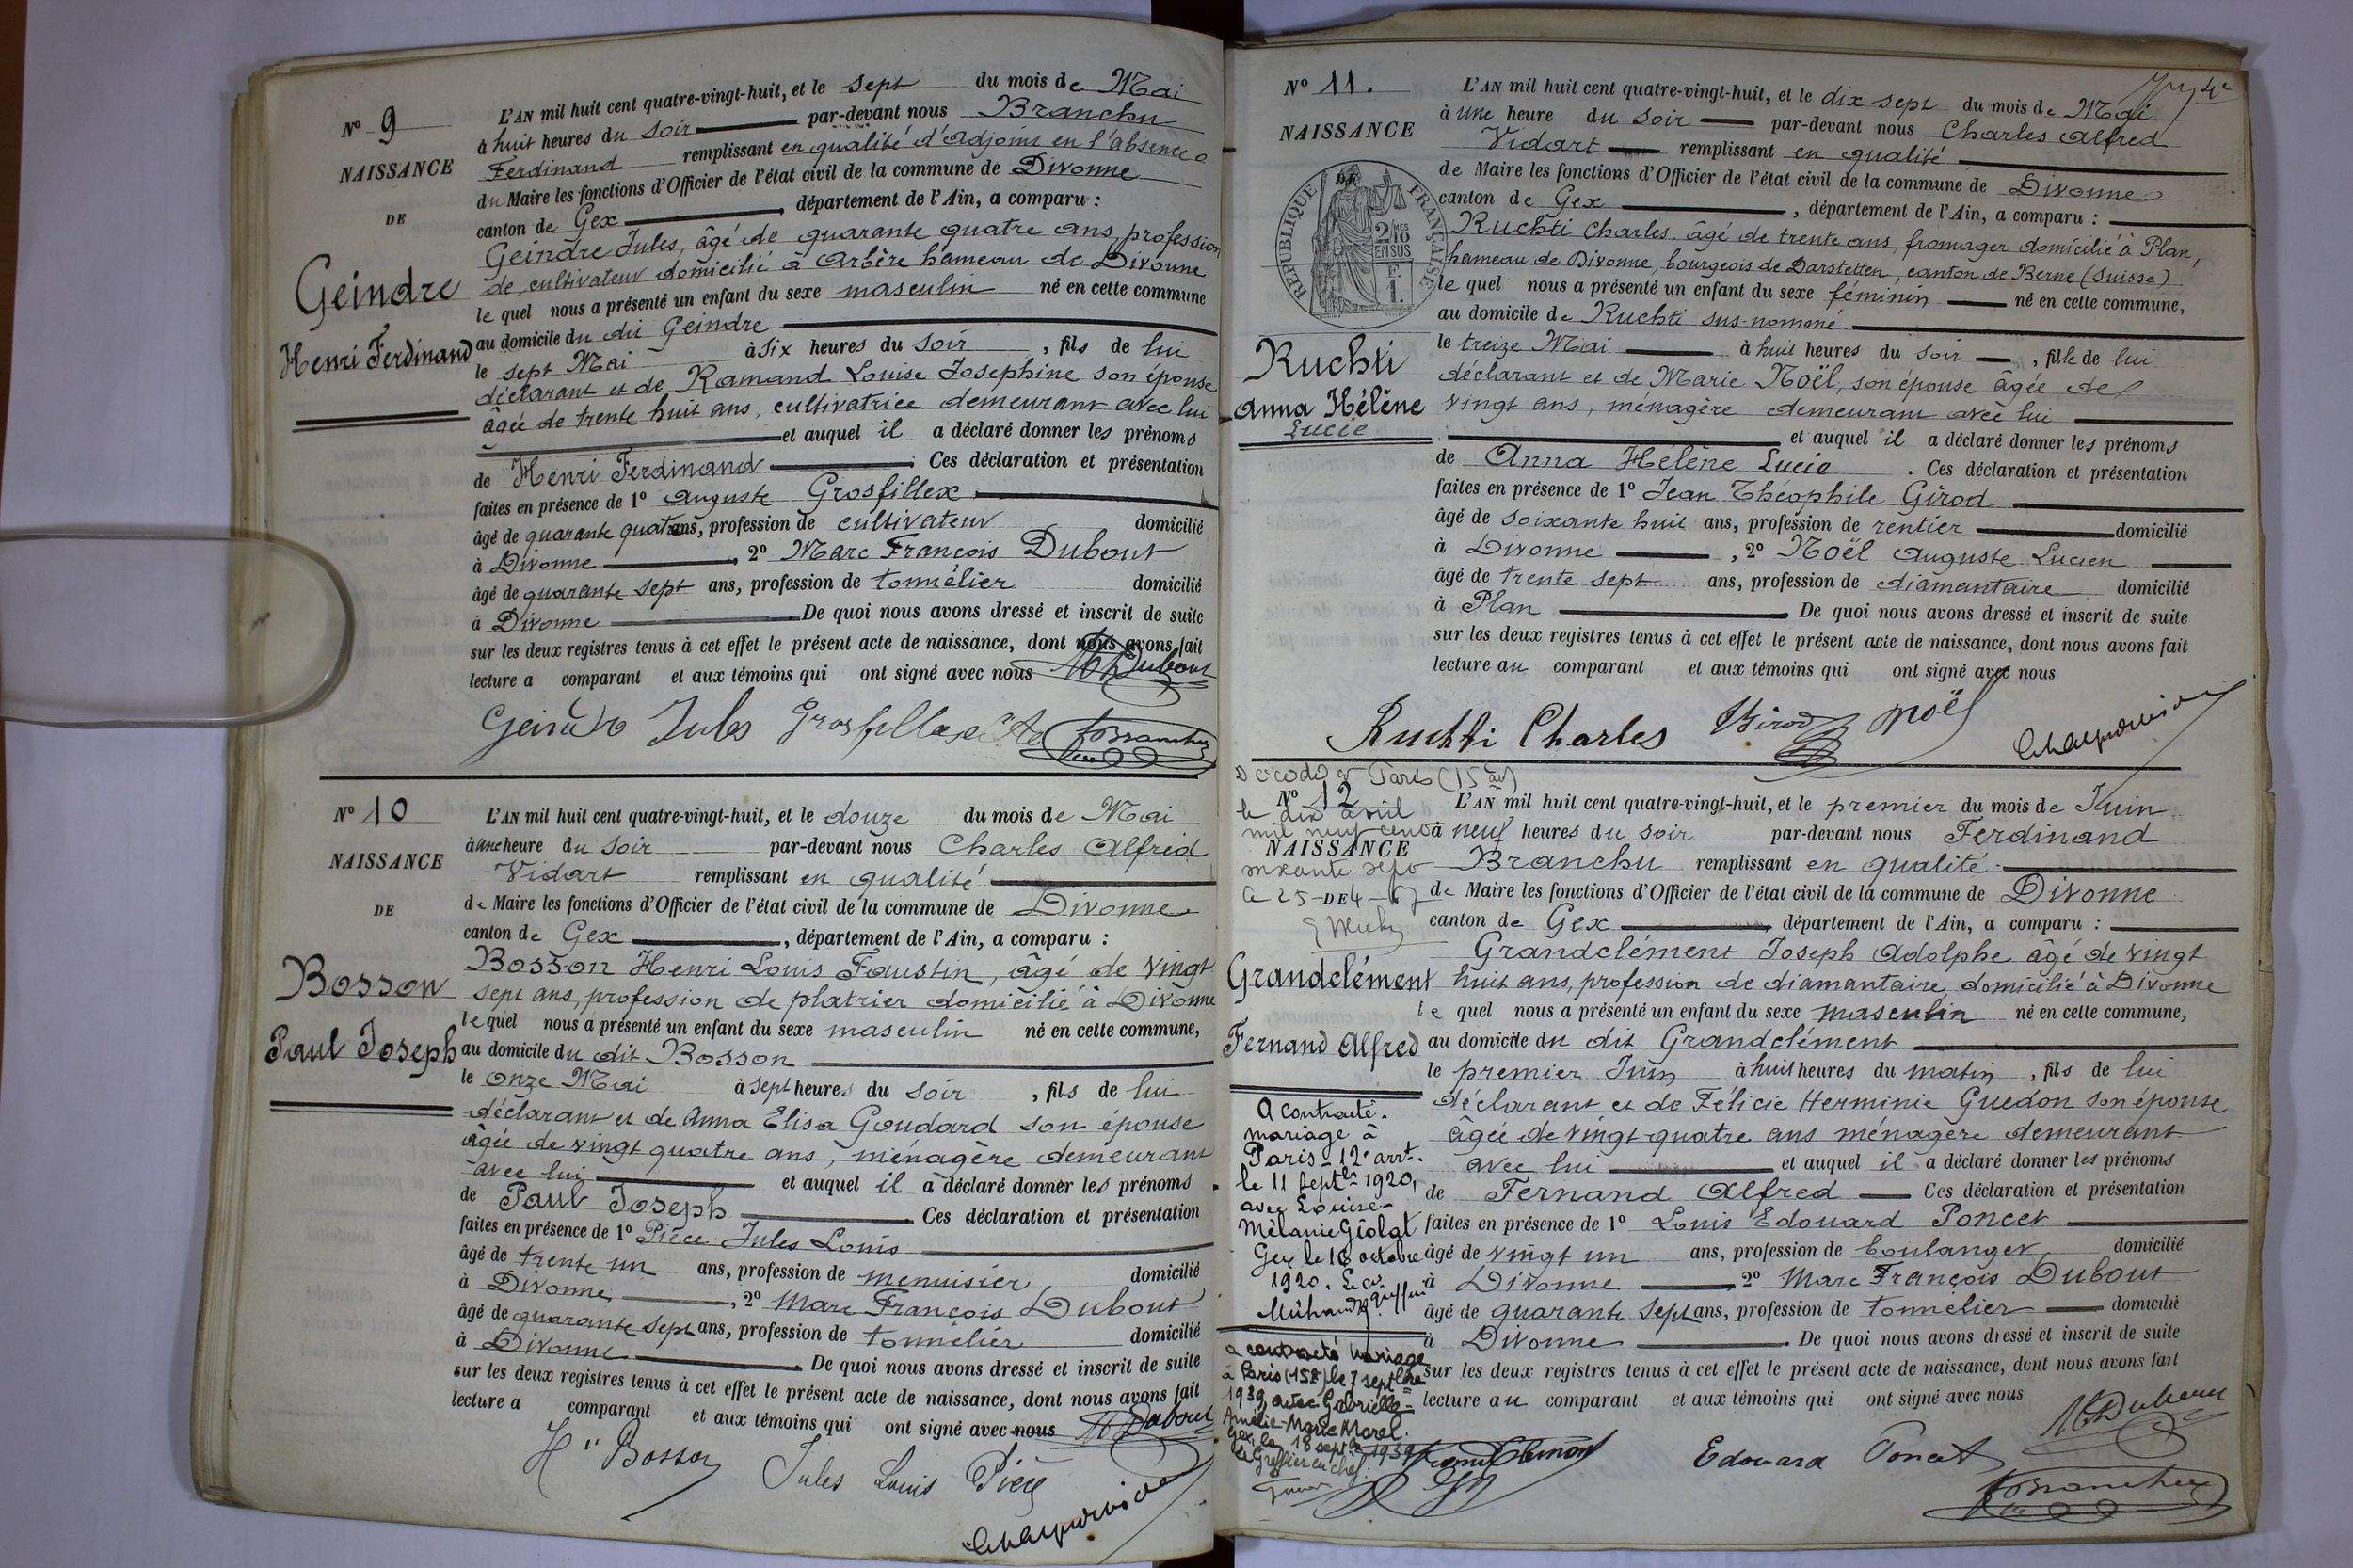 N° 9
NAISSANCE
DE
Geindre
Henri Ferdinand
L'AN mil huit cent quatre-vingt-huit, et le sept du mois de Mai
à huit heures du soir par-devant nous Branchu
Ferdinand remplissant en qualité d'adjoint en l'absence
du Maire les fonctions d'Officier de l'état civil de la commune de Divonne
canton de Gex, département de l'Ain, a comparu :
Geindre Jules, âgé de quarante quatre ans, profession
de cultivateur domicilié à Arbère hameau de Divonne
le quel nous a présenté un enfant du sexe masculin né en cette commune
au domicile du dit Geindre
le sept Mai à six heures du soir, fils de lui
déclarant et de Ramand Louise Josephine son épouse
âgée de trente huit ans, cultivatrice demeurant avec lui
et auquel il a déclaré donner les prénoms
de Henri Ferdinand. Ces déclaration et présentation
faites en présence de 1° Auguste Grosfillex
âgé de quarante quatre ans, profession de cultivateur domicilié
à Divonne, 2° Marc François Dubout
âgé de quarante sept ans, profession de tonnélier domicilié
à Divonne De quoi nous avons dressé et inscrit de suite
sur les deux registres tenus à cet effet le présent acte de naissance, dont nous avons fait
lecture a comparant et aux témoins qui ont signé avec nous Dubout
Geindre Jules Grosfillex Branchu
N° 10
NAISSANCE
DE
Bosson
Paul Joseph
L'AN mil huit cent quatre-vingt-huit, et le douze du mois de Mai
à une heure du soir par-devant nous Charles Alfred
Vidart remplissant en qualité
de Maire les fonctions d'Officier de l'état civil de la commune de Divonne
canton de Gex, département de l'Ain, a comparu :
Bosson Henri Louis Faustin, âgé de vingt
sept ans, profession de platrier domicilié à Divonne
le quel nous a présenté un enfant du sexe masculin né en cette commune,
au domicile du dit Bosson
le onze Mai à sept heures du soir, fils de lui
déclarant et de Anna Elisa Goudard son épouse
âgée de vingt quatre ans, ménagère demeurant
avec lui et auquel il a déclaré donner les prénoms
de Paul Joseph Ces déclaration et présentation
faites en présence de 1° Pièce Jules Louis
âgé de trente un ans, profession de menuisier domicilié
à Divonne, 2° Marc François Dubout
âgé de quarante sept ans, profession de tonnélier domicilié
à Divonne. De quoi nous avons dressé et inscrit de suite
sur les deux registres tenus à cet effet le présent acte de naissance, dont nous avons fait
lecture a comparant et aux témoins qui ont signé avec nous Dubout
Bosson Jules Louis Pièce
N° 11.
NAISSANCE
DE
RÉPUBLIQUE FRANÇAISE
2/10 MES
EN SUS
Ruchti
Anna Hélène
Lucie
L'AN mil huit cent quatre-vingt-huit, et le dix sept du mois de Mai
à une heure du soir par-devant nous Charles Alfred
Vidart remplissant en qualité
de Maire les fonctions d'Officier de l'état civil de la commune de Divonne
canton de Gex, département de l'Ain, a comparu :
Ruchti Charles, âgé de trente ans, fromager domicilié à Plan,
hameau de Divonne, bourgeois de Darstetten, canton de Berne (Suisse)
le quel nous a présenté un enfant du sexe féminin né en cette commune,
au domicile de Ruchti sus-nommé
le treize Mai à huit heures du soir, fille de lui
déclarant et de Marie Noël, son épouse âgée de
vingt ans, ménagère demeurant avec lui
et auquel il a déclaré donner les prénoms
de Anna Hélène Lucie. Ces déclaration et présentation
faites en présence de 1° Jean Théophile Girod
âgé de soixante huit ans, profession de rentier domicilié
à Divonne, 2° Noël Auguste Lucien
âgé de trente sept ans, profession de diamantaire domicilié
à Plan De quoi nous avons dressé et inscrit de suite
sur les deux registres tenus à cet effet le présent acte de naissance, dont nous avons fait
lecture au comparant et aux témoins qui ont signé avec nous
Ruchti Charles Girod Noël
Décédé à Paris (15
N° 12
le dix avril
mil neuf cent
NAISSANCE
soixante sept
DE
Grandclément
Fernand Alfred
A contracté
mariage à
Paris - 12e arrt.
le 11 Septbre 1920,
avec Louise
Mélanie Giolat
Gex, le 16 octobre
1920.
a contracté mariage
à Paris (15e) le 7 septbre
1939 avec Gabrielle
Amélie-Marie Morel.
Gex, le 18 septbre 1939
Le Greffier en chef.
L'AN mil huit cent quatre-vingt-huit, et le premier du mois de Juin
à neuf heures du soir par-devant nous Ferdinand
Branchu remplissant en qualité
de Maire les fonctions d'Officier de l'état civil de la commune de Divonne
canton de Gex, département de l'Ain, a comparu :
Grandclément Joseph Adolphe âgé de vingt
huit ans, profession de diamantaire domicilié à Divonne
le quel nous a présenté un enfant du sexe masculin né en cette commune,
au domicile du dit Grandclément
le premier Juin à huit heures du matin, fils de lui
déclarant et de Félicie Herminie Guedon son épouse
âgée de vingt-quatre ans ménagère demeurant
avec lui et auquel il a déclaré donner les prénoms
de Fernand Alfred Ces déclaration et présentation
faites en présence de 1° Louis Edouard Poncet
âgé de vingt un ans, profession de boulanger domicilié
à Divonne 2° Marc François Dubout
âgé de quarante sept ans, profession de tonnélier domicilié
à Divonne. De quoi nous avons dressé et inscrit de suite
sur les deux registres tenus à cet effet le présent acte de naissance, dont nous avons fait
lecture au comparant et aux témoins qui ont signé avec nous
Dubout
Edouard Poncet
Branchu